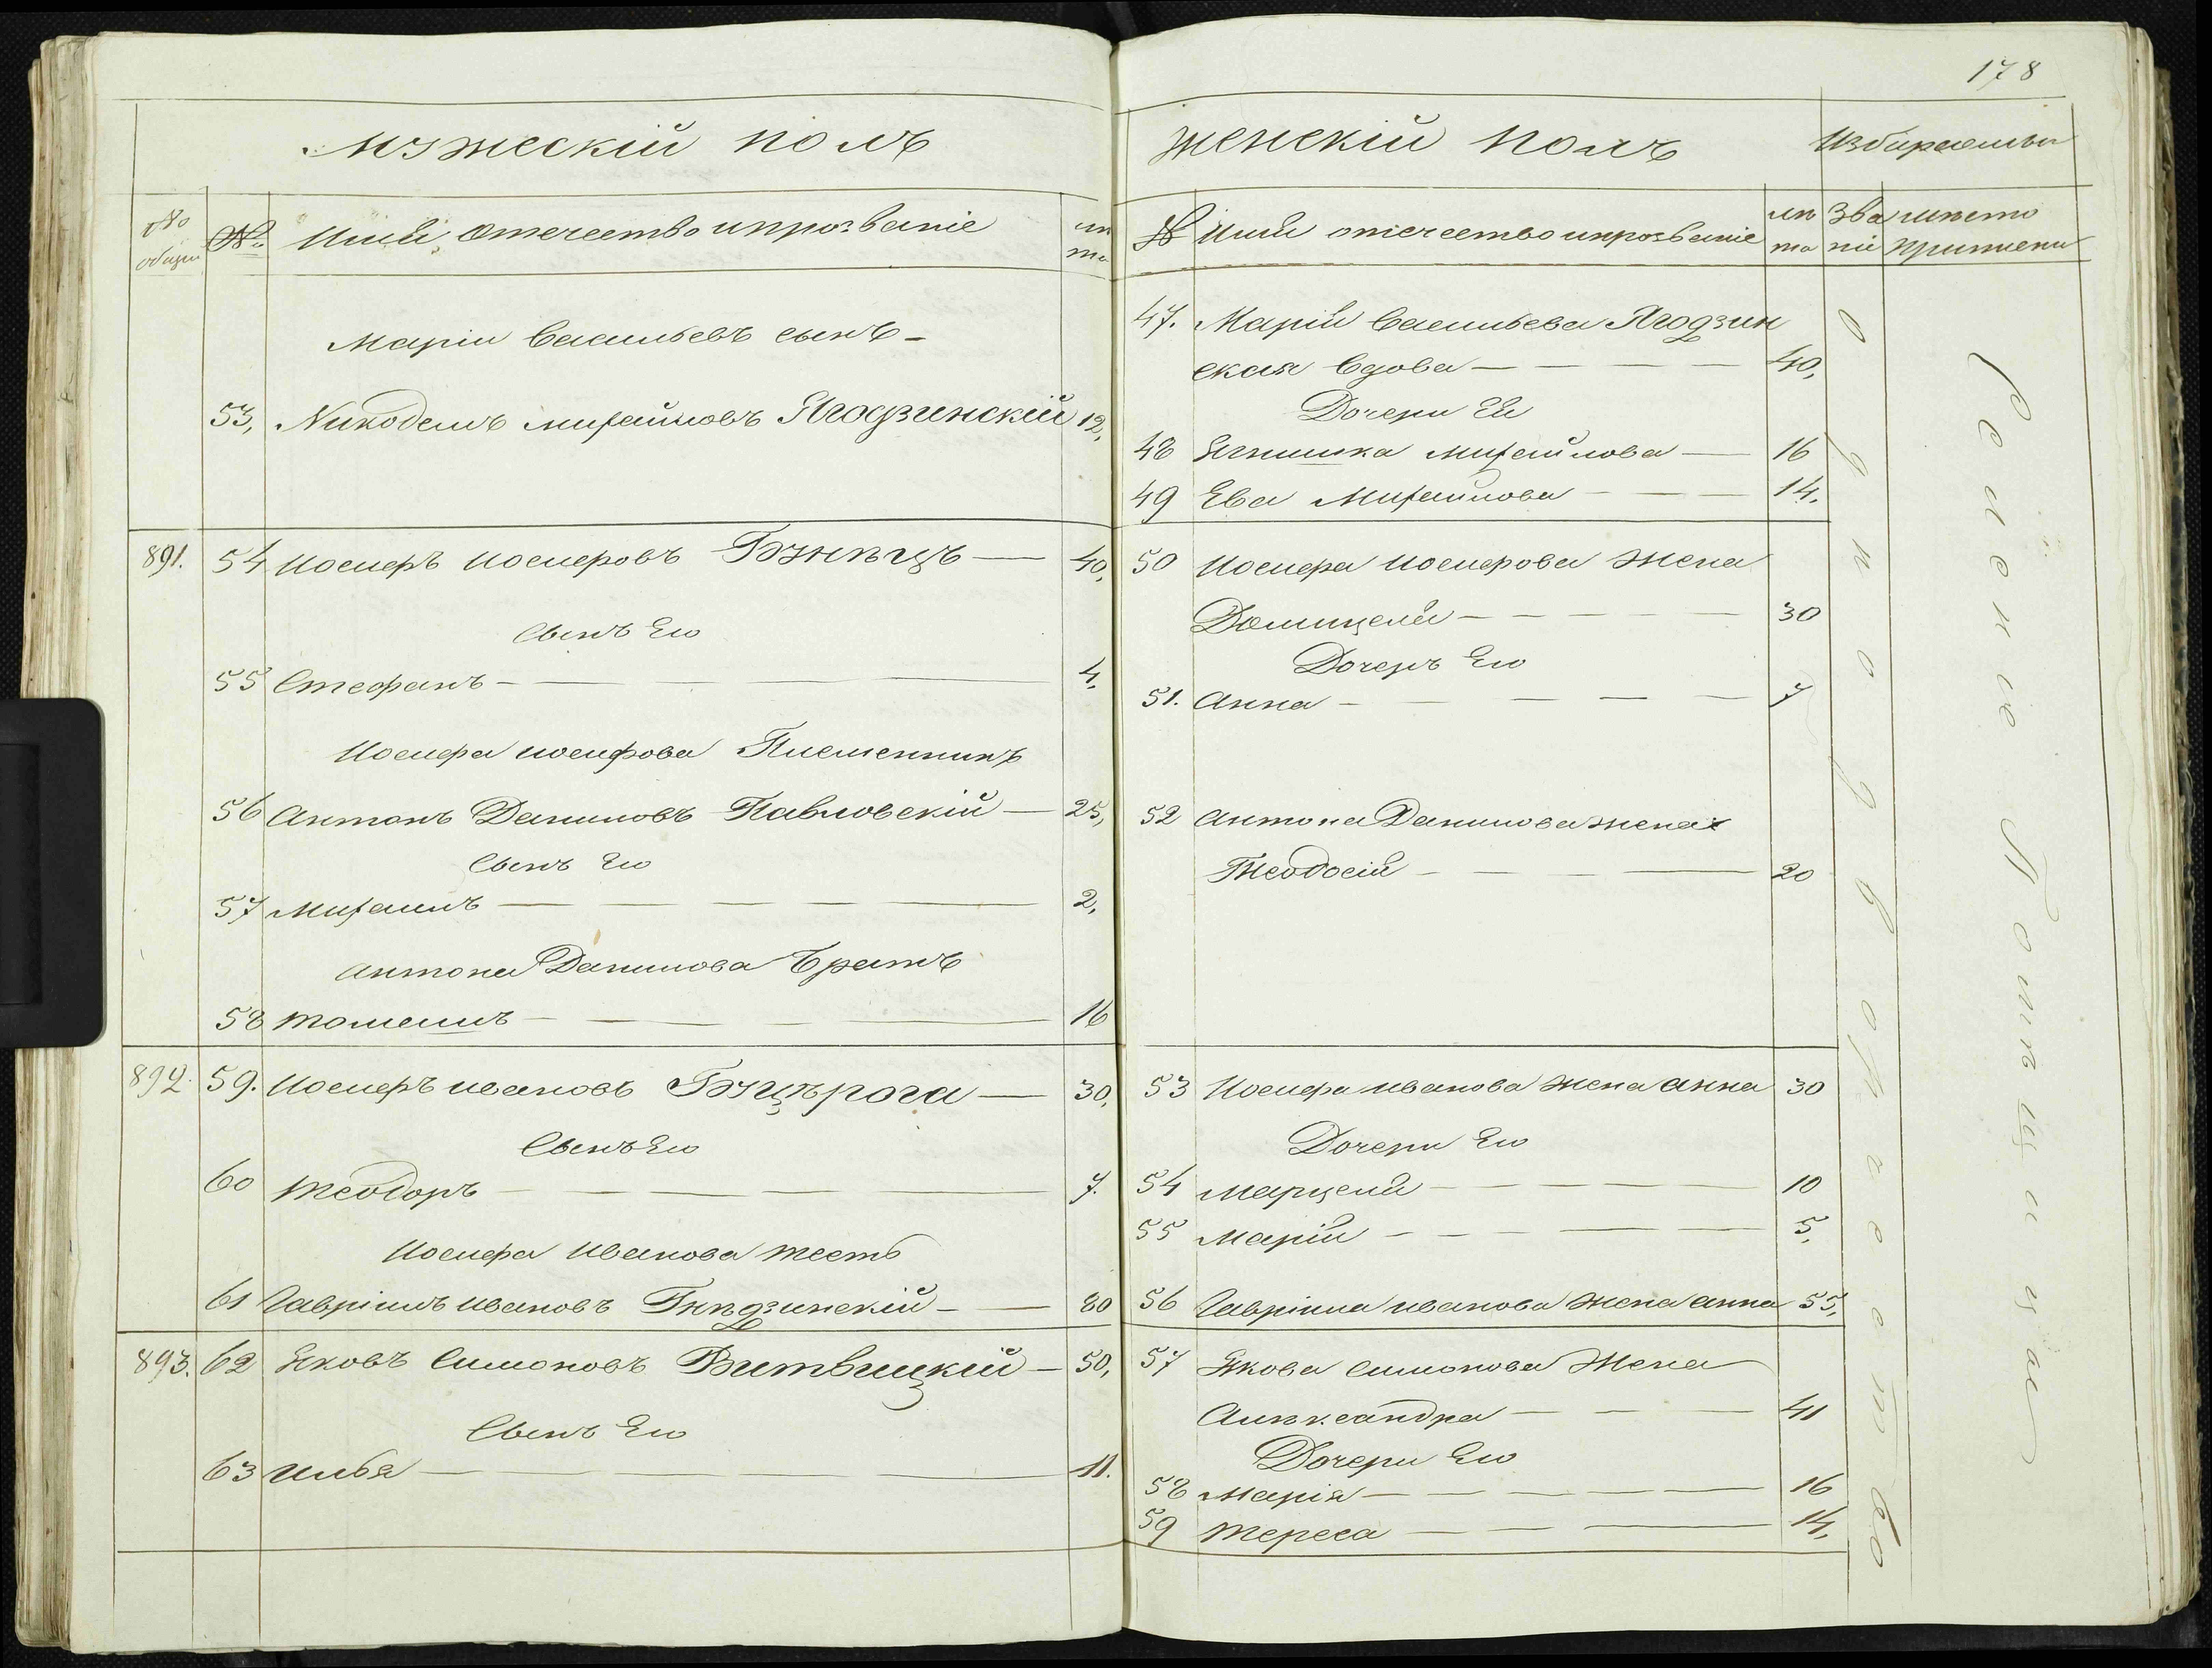 178
мужескій полъ
№ общій
№
Имя отечество и прозваніе
лѣта
Маріи Васильевъ сынъ -
53, Никодемъ михайловъ Ягодзинскій 12,
891. 54 Иосифъ Иосифовъ Бэнкгцъ — 40,
Сынъ Его
55 Стефанъ — 4,
Иосифа иосифова Племенникъ
56 Антонъ Даниловъ Павловскій — 25,
Сынъ Его
57 Михаилъ — 2,
Антона Данилова братъ
58 томашъ — 16
892. 59. Иосифъ ивановъ — 30,
Сынъ Его
60 теодоръ — 7.
Иосифа Иванова тесть
61 Гавріилъ ивановъ Гнѣдзинскій — 80
893. 62 Яковъ Симоновъ Витвицкій — 50,
Сынъ Его
63 илья — 11.
женскій полъ
№
Имя отечество и прозваніе
лѣта
Званіе
мѣсто
47. Марія Васильева Ягодзин
ская вдова — 40,
Дочери Ея
48 Ягнишка михайлова — 16
49 Ева Михайлова — 14,
50 Иосифа Иосифова жена
Домицеля — 30
Дочеръ Его
51. Анна — 7
52 Антона Данилова жена
Теодосія — 20
53 Иосифа иванова жена анна 30
Дочери Его
54 марцеля — 10
55 марія — 5,
56 Гавріила иванова жена анна 55,
57 Якова симонова жена
Алѣксандра — 41
Дочери Его
58 марія — 16
59 тереса — 14,
однодворчество